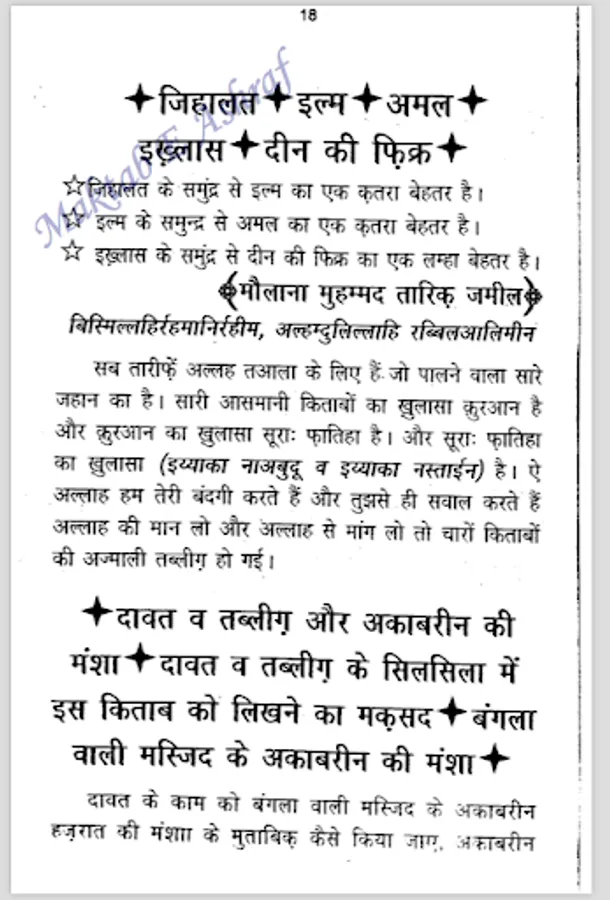 18
✦जिहालत✦इल्म✦अमल✦
इख़्लास✦दीन की फ़िक्र✦
☆जिहालत के समुंद्र से इल्म का एक क़तरा बेहतर है।
☆ इल्म के समुन्द्र से अमल का एक क़तरा बेहतर है।
☆ इख़्लास के समुंद्र से दीन की फिक्र का एक लम्हा बेहतर है।
मौलाना मुहम्मद तारिक़ जमील
बिस्मिल्लहिर्रहमानिर्रहीम, अल्हम्दुलिल्लाहि रब्बिलआलिमीन
सब तारीफ़ें अल्लह तआला के लिए हैं जो पालने वाला सारे
जहान का है। सारी आसमानी किताबों का खुलासा क़ुरआन है
और क़ुरआन का खुलासा सूराः फ़ातिहा है। और सूराः फ़ातिहा
का खुलासा (इय्याका नाअबुदू व इय्याका नस्ताईन) है। ऐ
अल्लाह हम तेरी बंदगी करते हैं और तुझसे ही सवाल करते हैं
अल्लाह की मान लो और अल्लाह से मांग लो तो चारों किताबों
की अज्माली तब्लीग़ हो गई।
✦दावत व तब्लीग़ और अकाबरीन की
मंशा✦दावत व तब्लीग़ के सिलसिला में
इस किताब को लिखने का मक़सद✦बंगला
वाली मस्जिद के अकाबरीन की मंशा✦
दावत के काम को बंगला वाली मस्जिद के अकाबरीन
हज़रात की मंशाा के मुताबिक़ कैसे किया जाए, अकाबरीन
Maktab E Ashraf